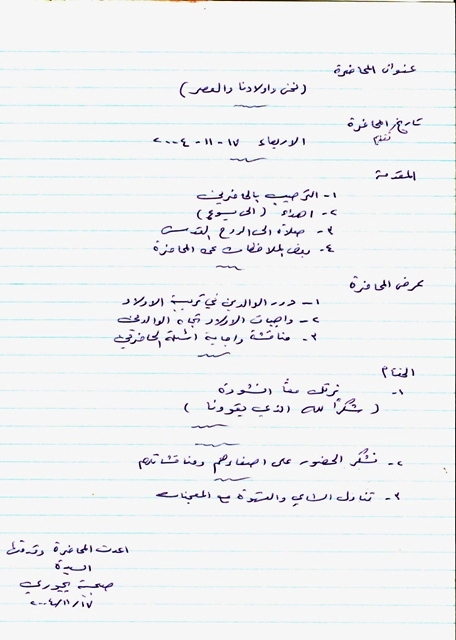 عنوان المحاضرة
( نحن واولادنا والعصر )
تاريخ المحاضرة
الاربعاء ١٧-١١-٢٠٠٤
المقدمة
١- الترحيب بالحاضرين
٢- اهداء (الى يسوع)
٣- صلاة الى الروح القدس
٤- بعض الملاحظات عن المحاضرة
عرض المحاضرة
١- دور الوالدين في تربية الاولاد
٢- واجبات الاولاد تجاه الوالدين
٣- مناقشة واجابة اسئلة الحاضرين
الختام
١- نرتل معًا انشودة
( شكرًا لله الذي يقودنا )
٢- نشكر الحضور على اصغاءهم ومناقشاتهم
٣- تناول الشاي والقهوة مع المعجنات
اعدت المحاضرة وقدمتها
السيدة
٢٠٠٤/١١/١٧